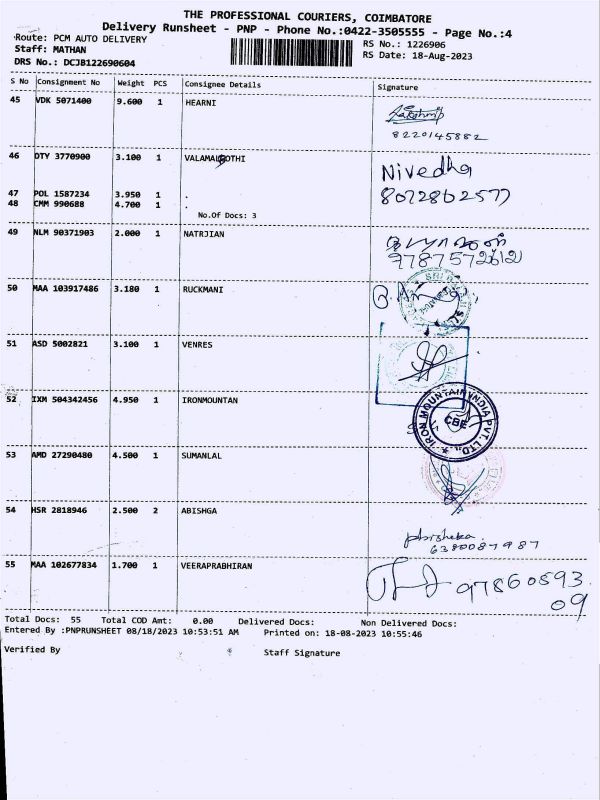 THE PROFESSIONAL COURIERS, COIMBATORE
Delivery Runsheet - PNP - Phone No.:0422-3505555 - Page No.:4
Route: PCM AUTO DELIVERY
RS No.: 1226906
Staff: MATHAN
RS Date: 18-Aug-2023
DRS No.: DCJB122690604
S No Consignment No Weight PCS Consignee Details Signature
45 VDK 5071400 9.600 1 HEARNI
8220145882
46 DTY 3770900 3.100 1
Nivedha
47 POL 1587234 3.950 1 .
8072862577
48 CMM 990688 4.700 1 .
No.Of Docs: 3
49 NLM 90371903 2.000 1 NATRJIAN
50 MAA 103917486 3.180 1 RUCKMANI
51 ASD 5002821 3.100 1 VENRES
52 IXM 504342456 4.950 1 IRONMOUNTAN
IRON MOUNTAIN INDIA PVT. LTD.,
CBE
53 AMD 27290480 4.500 1 SUMANLAL
54 HSR 2818946 2.500 2 ABISHGA
6380087987
55 MAA 102677834 1.700 1 VEERAPRABHIRAN
97860593
09
Total Docs: 55 Total COD Amt: 0.00 Delivered Docs: Non Delivered Docs:
Entered By :PNPRUNSHEET 08/18/2023 10:53:51 AM Printed on: 18-08-2023 10:55:46
Verified By Staff Signature